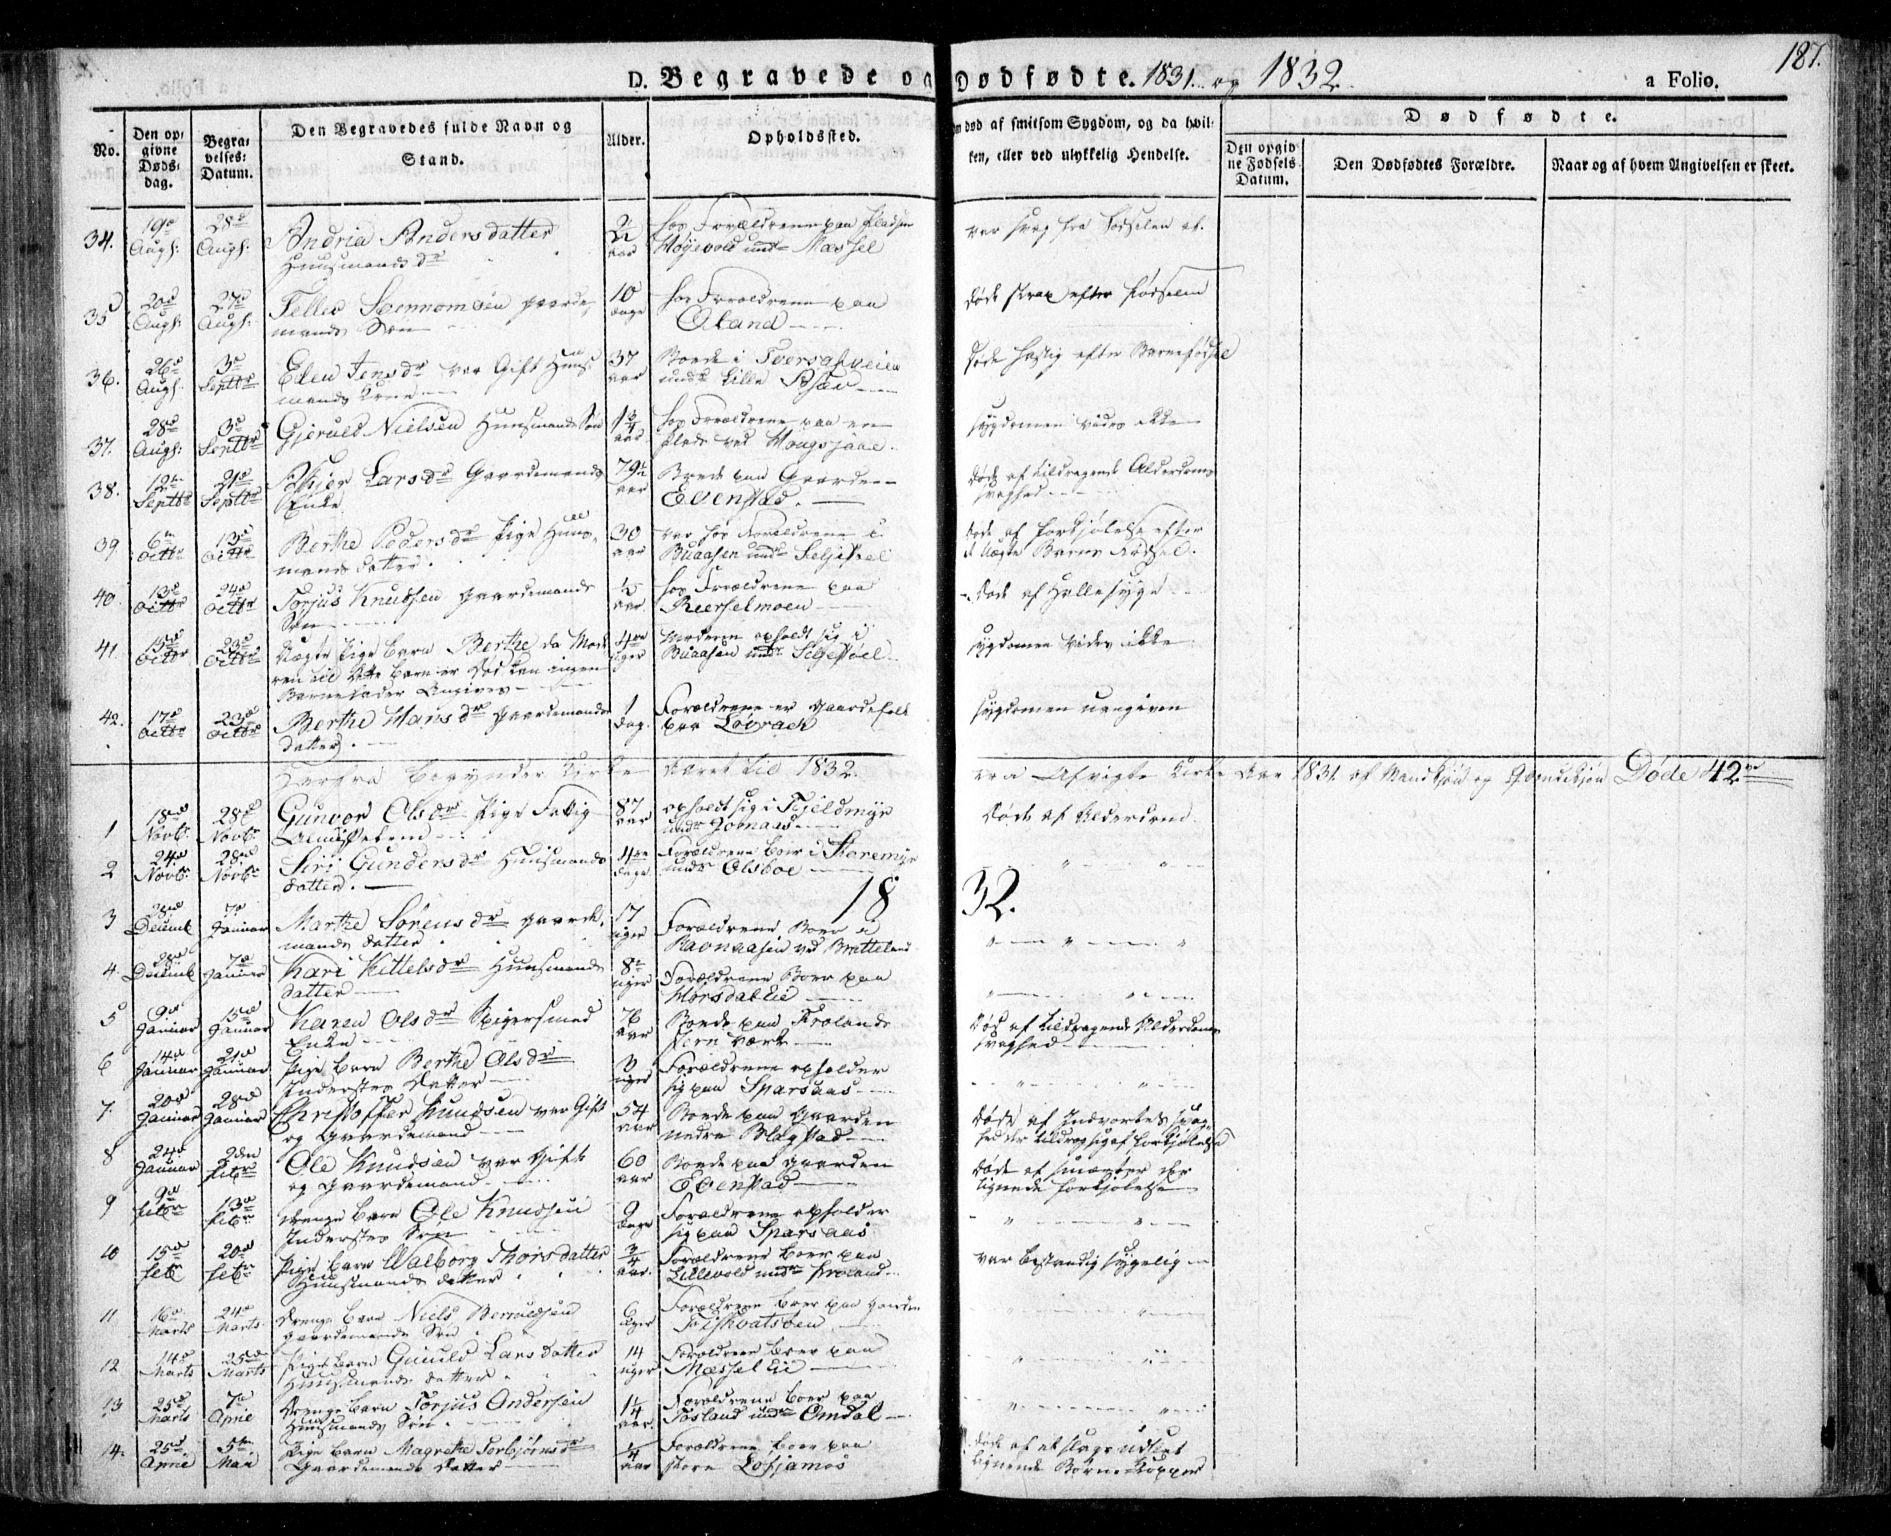 187.
D. Begravede og Dødfødte. 1831. og 1832. a Folio.
No.
Den opgivne Dødsdag.
Begravelses: Datum.
Den Begravedes fulde Navn og Stand.
Alder.
Opholdssted.
død af smitsom Sygdom, og da hvilken, eller ved ulykkelig Hendelse.
Dødfødte.
Den opgivne Fødsels Datum.
Den Dødfødtes Forældre.
Naar og af hvem Angivelsen er skeet.
34. 19de Augs: 28de Augs: Andria Andersdatter Huusmands dr aar hos Forældrene paa Pladsen Høyevold under Mæssel var svag fra Fødselen af.
35 20de Augs: 27de Augs: Gaardemands Søn 10 dage hos Forældrene paa Aaland døde strax efter Fødselen
36. 26de Augs. 3de Septbr Elen Jensdr var Gift Huusmands Kone 37 aar Boede i under Lille døde hastig efter Barnefødsel
37. 28de Augs: 3de Septbr Gjeruld Nielsen Huusmands Søn 1 3/4 aar hos Forældrene paa en Plads ved Sygdommen vides ikke
38. 12te Septbr 21de Septbr Larsdr Gaardemands Enke. 79 1/2 aar Boede paa Gaarden Evenstad. Døde af tildragende Alderdoms svaghed
39 6te Octbr 13de Octbr Berthe Pedersdr Pige Huusmands datter. 30 aar var hos Forældrene i Buaasen under døde af Forkjølelse efter et Uægte Barns Fødsel.
40. 13de Octbr 24de Octbr Torjus Knudsen Gaardemands Søn 1/2 aar. hos Forældrene paa Reierselmoen Døde af
41. 15de Octbr 23de Octbr Uægte Pige Barn Berthe da Moderen til dette Barn er død kan ingen Barnefader Angives 4re uger Moderen opholdt sig i Buaasen under Sygdommen vides ikke
42. 17de Octbr 23de Octbr Berthe Hansdr Gaardemands datter. 1 dag. Forældrene er Gaardefolk paa Løvrack Sygdommen uangiven
Herfra begynder Kirke Aaret til 1832. Afvigte Kirke Aar 1831 af Mandkjøn og Qvindekjøn Døde 42
1 18de Novbr. 28de Novbr. Gunvor Olsdr Pige Fattig 87 aar opholdt sig i Fjeldmyr under Døde af Alderdom.
2 24de Novbr. 28de Novbr. Siri Gundersdr Huusmands datter. 4re dage Forældrene boer i Storemyr under Olsboe " "
1832.
3 28de Decemb 7de Januar Marthe Sørensdr Gaardemands datter 17 uger Forældrene Boer i Ravnaasen ved Bratteland " " "
4. 28de Decemb 7de Januar Kari Kittelsdr Huusmands datter 8te uger Forældrene Boer paa Mørsdal Eie " "
5 9de Januar 15de Januar Karen Olsdr Spigersmed Enke 76 aar Boede paa Frolands Jern værk Død af tildragende Alderdoms svaghed
6 14de Januar 21de Januar Pige Barn Berthe Olsdr Inderstes Datter 3 uger Forældrene opholder sig paa Sparsaas " "
7. 20de Januar 28de Januar Christoffer Knudsen var Gift og Gaardemand 54 aar Boede paa Gaarden nedre Blagstad Døde af Indvortes svaghed der tildrog sig af Forkjølelse
8 24de Januar Febr Ole Knudsen var Gift og Gaardemand 60 aar Boede paa Gaarden Evenstad Døde af lignede Forkjølelse
9 9de Febr 13de Febr Drenge Barn Ole Knudsen Inderstes Søn 9 Dage Forældrene opholder sig paa Sparsaas " "
10 15de Febr 20de Febr Pige Barn Walborg Thorsdatter Huusmands datter 3/4 aar. Forældrene boer paa Lillevold under Froland var bestandig sygelig
11 16de Marts 24de Marts Drenge Barn Niels Gaardemands Søn 6 uger Forældrene boer paa Gaarden " "
12 14de Marts 25de Marts Pige Barn Gunild Larsdatter Huusmands datter 14 uger Forældrene boer paa Mæssel Eie " "
13 25de Marts 7de Aprie Drenge Barn Torjus Andersen Huusmands Søn. 1 1/4 aar. Forældrene boer paa Fosland under Omdal " "
14. 25de Aprie 5te Mai Pige Barn Magrethe Torbjørnsdr Gaardemands Datter 1/4 aar Forældrene boer paa store døde af et slags udslet lignende Børne Kopper